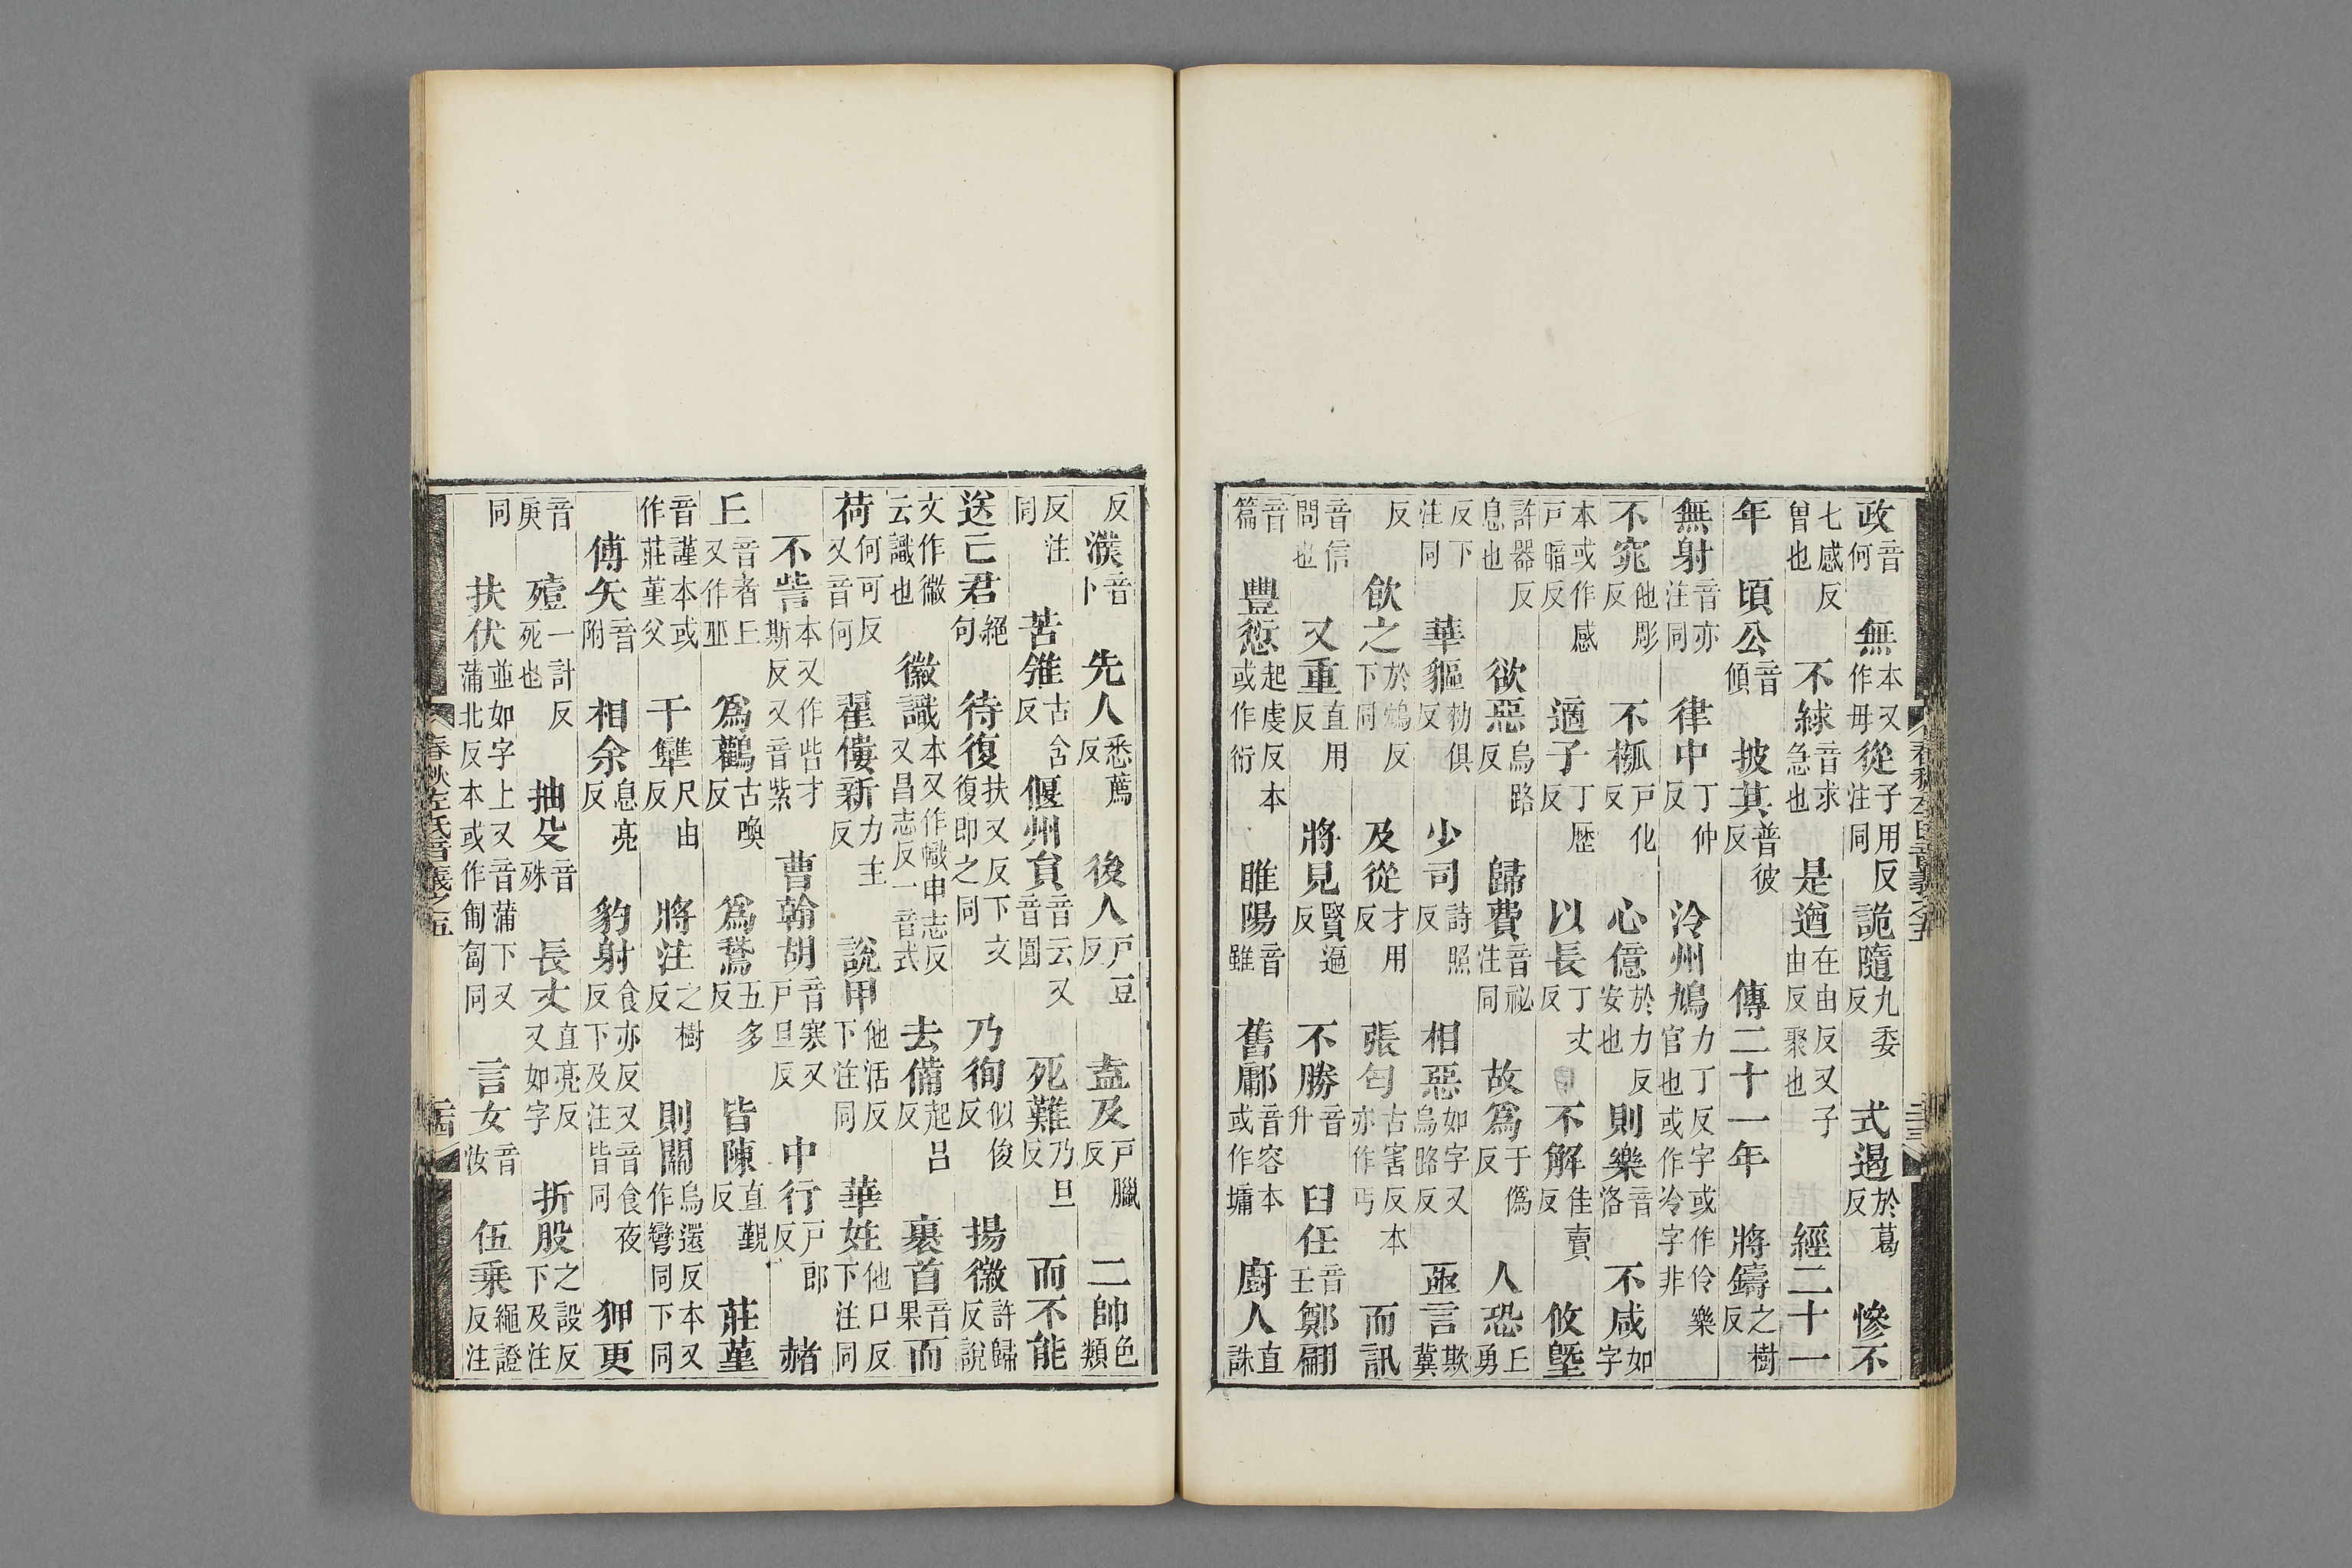 政音何無本又作毋從子用反注同詭隨九委反式遏於葛反慘不
七感反曾也不絿音求急也是遒在由反又子由反聚也經二十一
年頃公音傾披其普彼反傳二十一年將鑄之樹反
無射音亦注同律中丁仲反泠州鳩力丁反字或作伶樂官也或作冷字非
不窕他彫反不槬戶化反心億於力反安也則樂音洛不咸如字
本或作感戶暗反適子丁歷反以長丁丈反不解佳賣反攸墍
許器反息也欲惡烏路反歸費音祕注同故爲于僞反人恐丘勇
反下注同華貙勑俱反少司詩照反相惡如字又烏路反亟言欺冀
反飲之於鴆反下同及從才用反張匄古害反本亦作丐而訊
音信問也又重直用反將見賢遍反不勝音升臼任音壬鄭翩
音篇豐愆起虔反本或作衍睢陽音雖舊鄘音容本或作墉廚人直誅
春秋左氏音義之五
反濮音卜先人悉薦反後人戶豆反盍及戶臘反二帥色類
反注同苦雂古含反偃州員音云又音圓死難乃旦反而不能
送亡君絕句待復扶又反下文復即之同乃徇似俊反揚徽許歸反說
文作微云識也徽識本又作幟申志反又昌志反一音式去備起呂反裹首音果而
荷何可反又音何翟僂新力主反說甲他活反下注同華妵他口反下注同
不訾本又作呰才斯反又音紫曹翰胡音寒又戶旦反中行戶郎反赭
丘音者丘又作丠爲鸛古喚反爲鵞五多反皆陳直覲反莊堇
音謹本或作莊堇父干犨尺由反將注之樹反則關烏還反本又作彎同下同
傅矢音附相余息亮反豹射食亦反又音食夜反下及注皆同狎更
音庚殪一計反死也抽殳音殊長丈直亮反又如字折股之設反下及注
同扶伏並如字上又音蒲下又蒲北反本或作匍匐同言女音汝伍乗繩證反注
春秋左氏音義之五